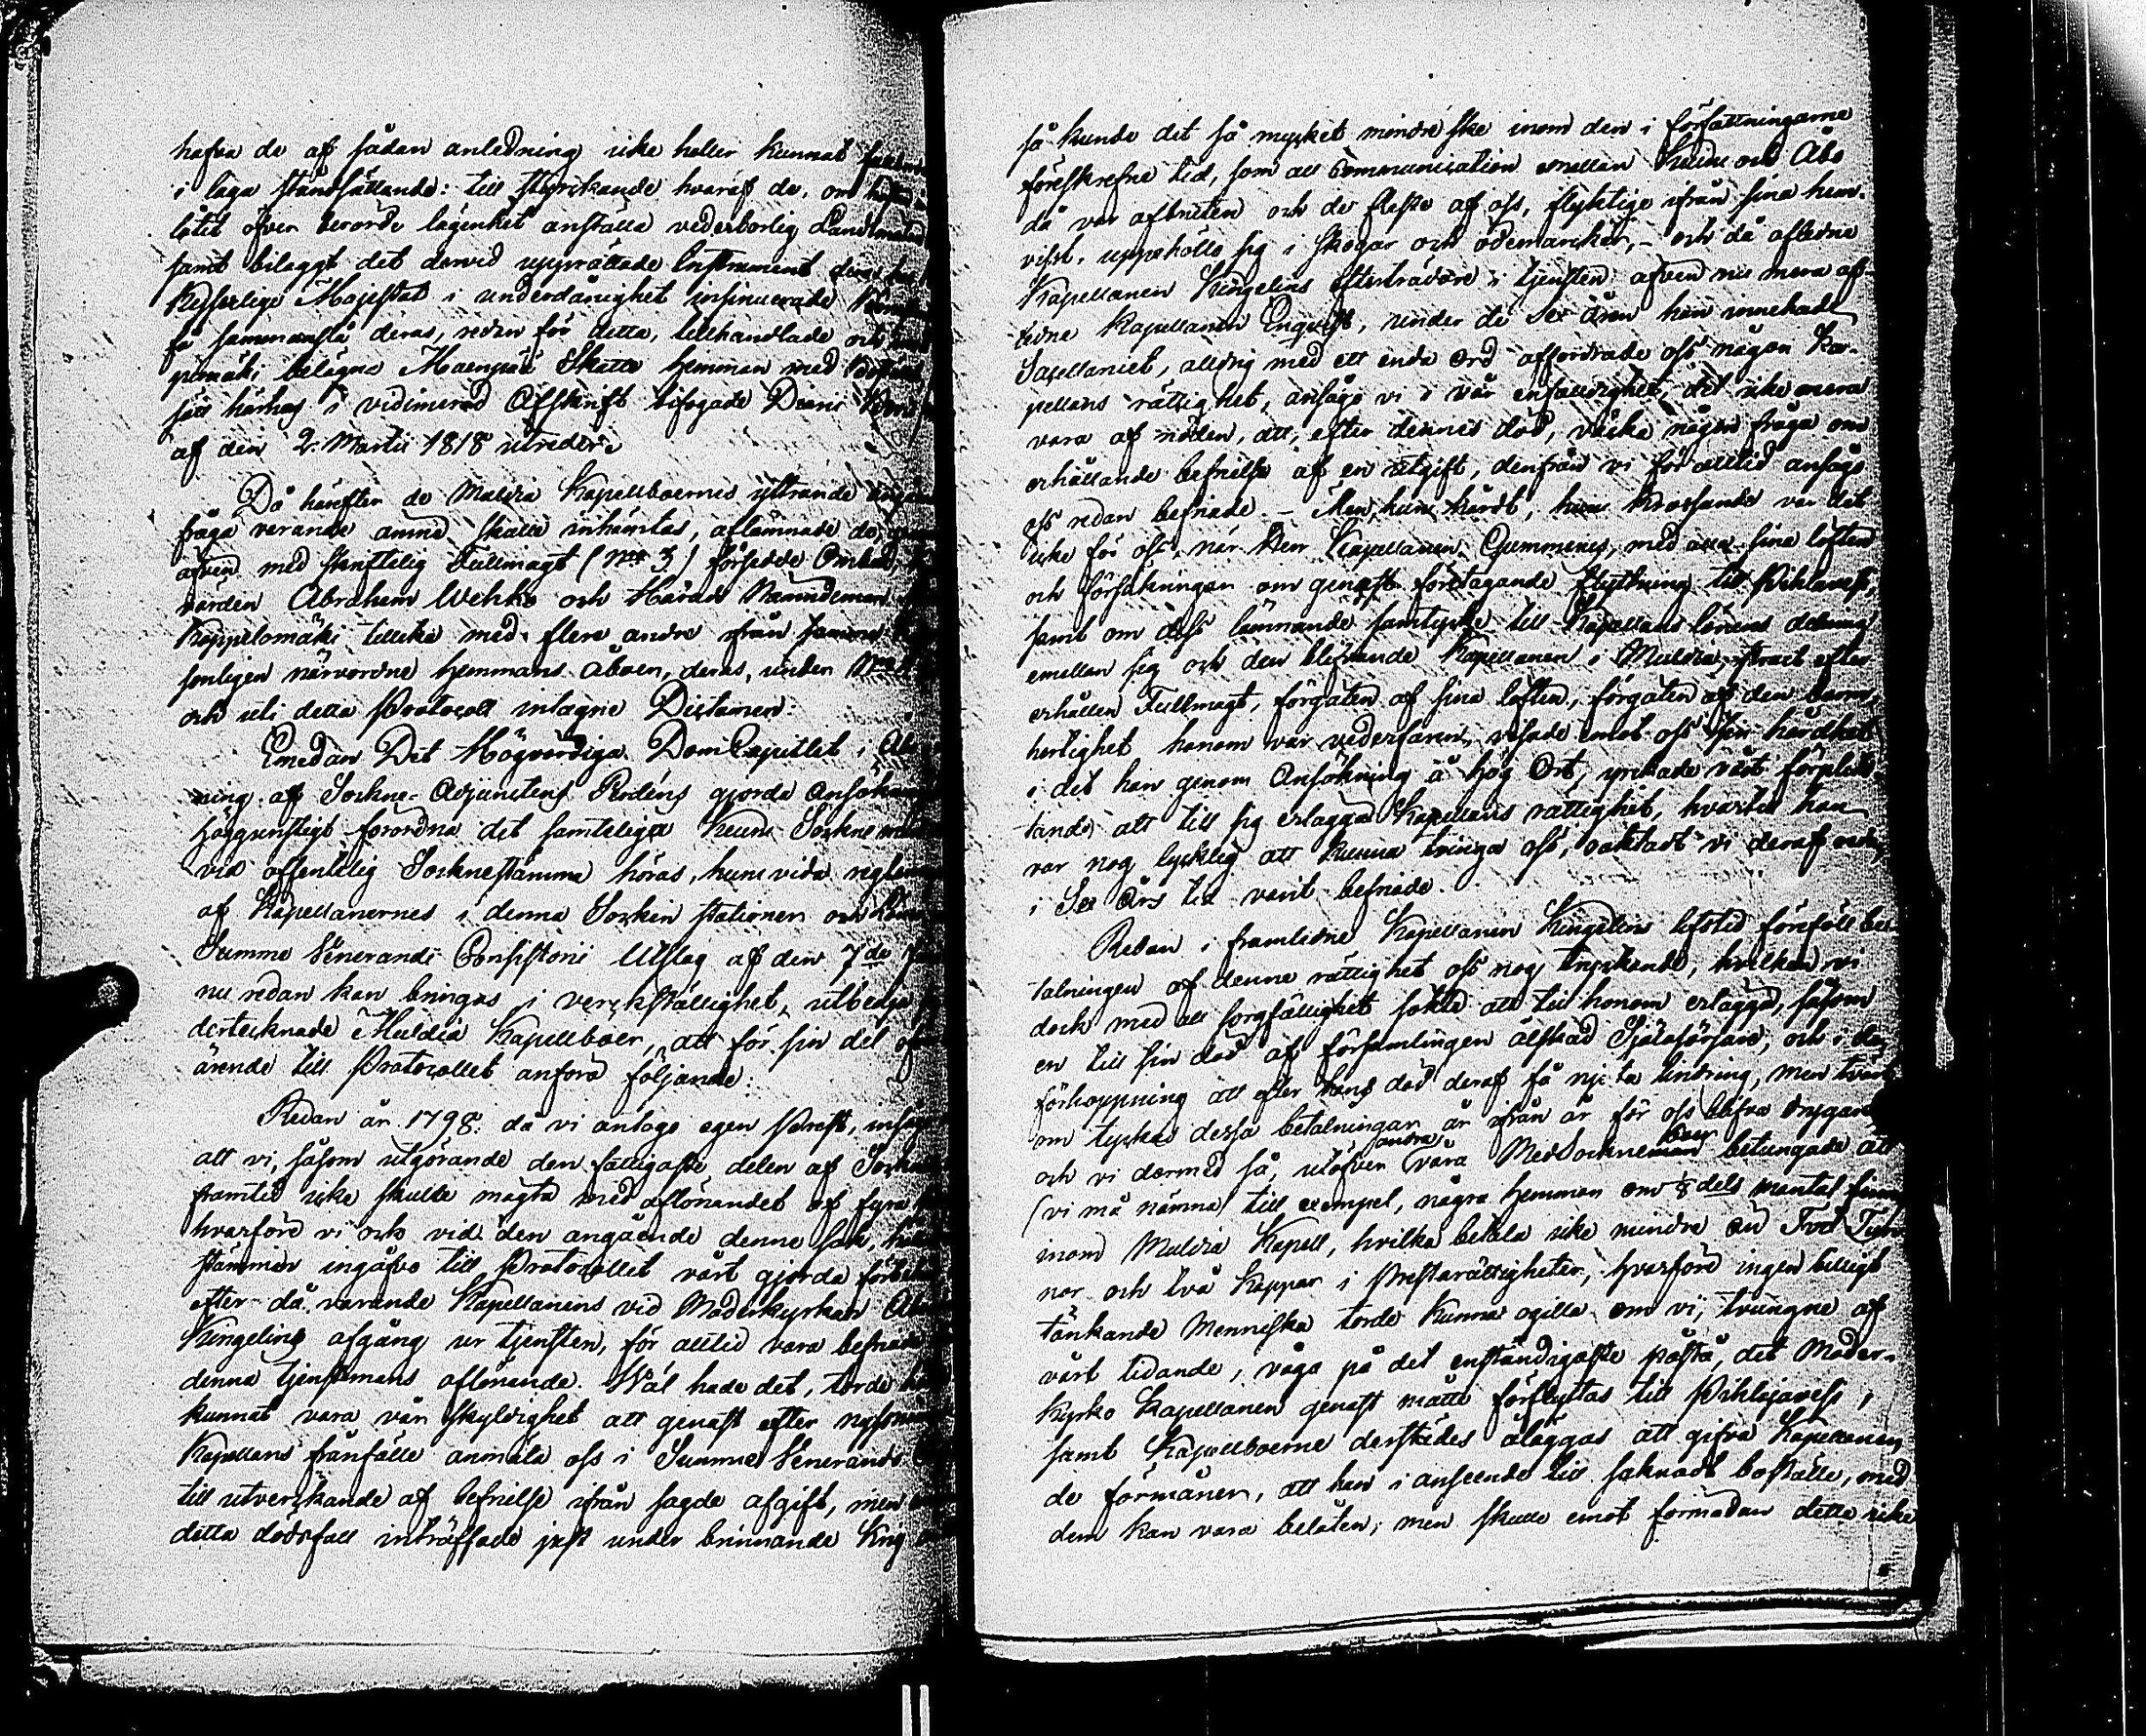 hafva de af sådan anledning icke heller kunnat
i laga ståndsättande: till styrckande hvaraf de, om
låtit öfver berörde lägenhet anställa vederbörlig Landtmäteri
samt bilaggt det dervid upprättade Instrument
Kejserlige Majestät i underdånighet insinuerade
få sammanslå deras, redan för detta, tillhandlade och
pimäki belägne Maenpää Skatte hemman med
sätt härhos i vidimerad Afskrift bifogade Diarii
af den 2. Martii 1818 utreder.
Då härefter de Muldia Kapellboernes yttrande
fråga varande ämne skulle inhämtas, aflämnade de,
äfven med skriftelig Fullmagt (N:o 3) försedde Ombud,
värden Abraham Wehko och Härads Nämndeman
Koppelomäki tillika med flere andre ifrån samma
sonligen närvordne hemmans Åboer, deras, under N:o
och uti detta Protocoll intagne Dictamen:
Emedan Det Högvördiga DomCapitlet i Åbo
ning af Sockne-Adjunctens Rodéns gjorda Ansökning
höggunstigt förordna det samtelige Keuru Sockne
vid offentelig Socknestämma höras, huruvida regle
af Kapellanernes i denna Socken stationer och
Summe Venerandi Consistorii Utslag af den 7de
nu redan kan bringas i verckställighet, utbedja
dertecknade Muldia Kapellboer, att för sin del
ärende till Protocollet anföra följande:
Redan år 1798. då vi antogo egen Prest, insågo
att vi, såsom utgörande den fattigaste delen af Socknen
framtid icke skulle mägta med aflönandet af fyra
hvarföre vi ock vid den angående denne sak,
stämmor ingåfvo till Protocollet vårt gjorda förbehåll
efter då varande Kapellanens vid Moderkyrkan
Kingelins afgång ur tjensten, för alltid vara befriade
denna tjenstemans aflönande. Wäl hade det, torde
kunnat vara vår skyldighet att genast efter nyss
Kapellans frånfälle anmäla oss i Summe Venerandi
till utverckande af befrielse ifrån sagde afgift, men
detta dödsfall inträffade just under brinnande Krig
så kunde det så mycket mindre ske inom den i författningarne
föreskrefne tid, som all Communication emellan Keuru och Åbo
då var afbruten och de fleste af oss, flyktige ifrån sina hem-
vist, uppehöllo sig i skogar och ödemarcker, – och då aflidne
Kapellanen Kingelins efterträdare i tjensten äfven nu mera af-
lidne Kapellanen Enqvist, under de sex åren han innehade
Sacellaniet, alldrig med ett enda ord affordrade oss någon Ka-
pellans rättighet, ansågo vi i vår enfalldighet, det icke mera
vara af nöden, att, efter dennes död, väcka någon fråga om
erhållande befrielse af en utgift, derifrån vi för alltid ansågo
oss redan befriade. – Men huru hårdt, huru krossande var det
icke för oss, när Herr Kapellanen Gummerus, med alla sina löften
och försäkringar om genast företagande flyttning till Pihlavesi,
samt om dess lämnande samtycke till Kapellans lönens delning
emellan sig och den blifvande Kapellanen i Muldia, strax efter
erhållen Fullmagt, förgäten af sina löften, förgäten af den barm-
hertighet honom var vederfaren, visade emot oss sin hårdhet
i det han genom Ansökning å hög Ort, yrckade vårt förplik-
tande att till sig erlägga Kapellans rättighet, hvartill han
var nog lycklig att kunna tvinga oss, oaktadt vi deraf redan
i Sex Års tid varit befriade.
Redan i framlidne Kapellanen Kingelins lifstid föreföll be-
talningen af denne rättighet oss nog tryckande, hvilken vi
dock med all sorgfällighet sökte att till honom erlägga, såsom
en till sin död af församlingen älskad Själasörjare, och i den
förhoppning att efter hans död deraf få njuta lindring, men tvärt
om tyckas dessa betalningar år ifrån år för oss blifva drygare
och vi dermed så, utöfver våra andre MedSockneboer betungade att
(vi må nämna till exempel, några hemman om 1/8 dels mantal finnas
inom Muldia Kapell, hvilka betala icke mindre än Två Tun-
nor och två Kappar i Prestarättigheter, hvarföre ingen billigt
tänkande Menniska torde kunna ogilla om vi, tvungne af
vårt lidande, våga på det enständigaste påstå, det Moder-
kyrko Kapellanen genast måtte förflyttas till Pihlajavesi,
samt Kapellboerne derstädes åläggas att gifva Kapellanen
de förmåner, att han i anseende till saknadt boställe, med
dem kan vara belåten; men skulle emot förmodan detta icke